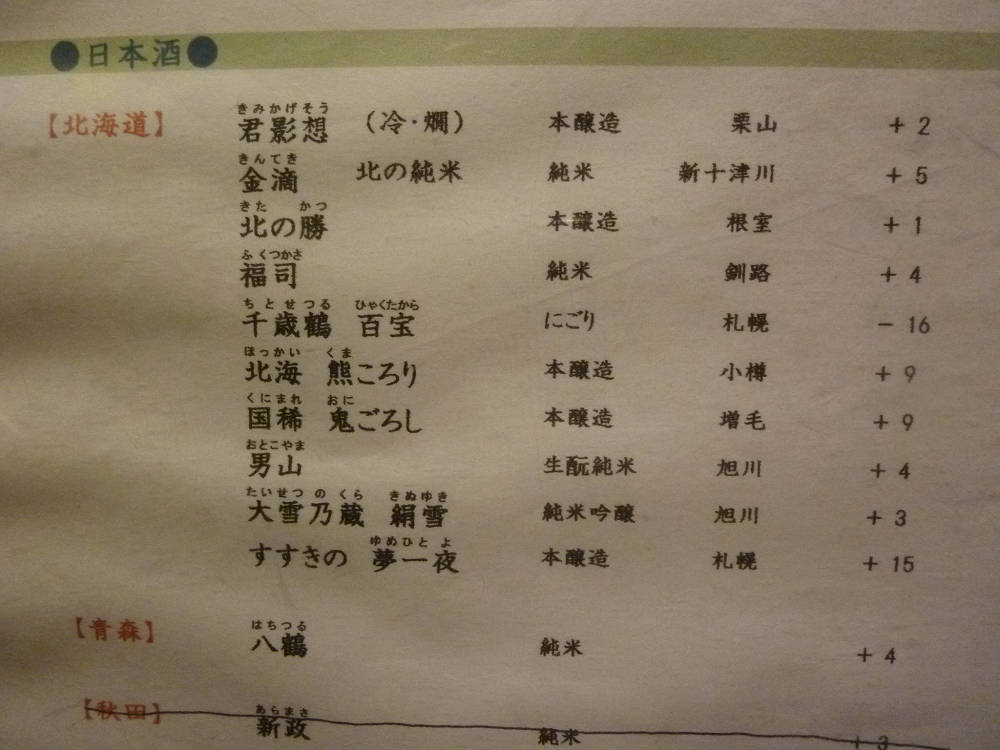 ●日本酒●
【北海道】 君影想 (きみかげそう) (冷・燗) 本醸造 栗山 +2
金滴 (きんてき) 北の純米 純米 新十津川 +5
北の勝 (きた かつ) 本醸造 根室 +1
福司 (ふくつかさ) 純米 釧路 +4
千歳鶴 (ちとせつる) 百宝 (ひゃくたから) にごり 札幌 -16
北海 (ほっかい) 熊ころり (くま) 本醸造 小樽 +9
国稀 (くにまれ) 鬼ごろし (おに) 本醸造 増毛 +9
男山 (おとこやま) 生酛純米 旭川 +4
大雪乃蔵 (たいせつ の くら) 絹雪 (きぬゆき) 純米吟醸 旭川 +3
すすきの 夢一夜 (ゆめひと よ) 本醸造 札幌 +15
【青森】 八鶴 (はちつる) 純米 +4
【秋田】 新政 (あらまさ) 純米 +3